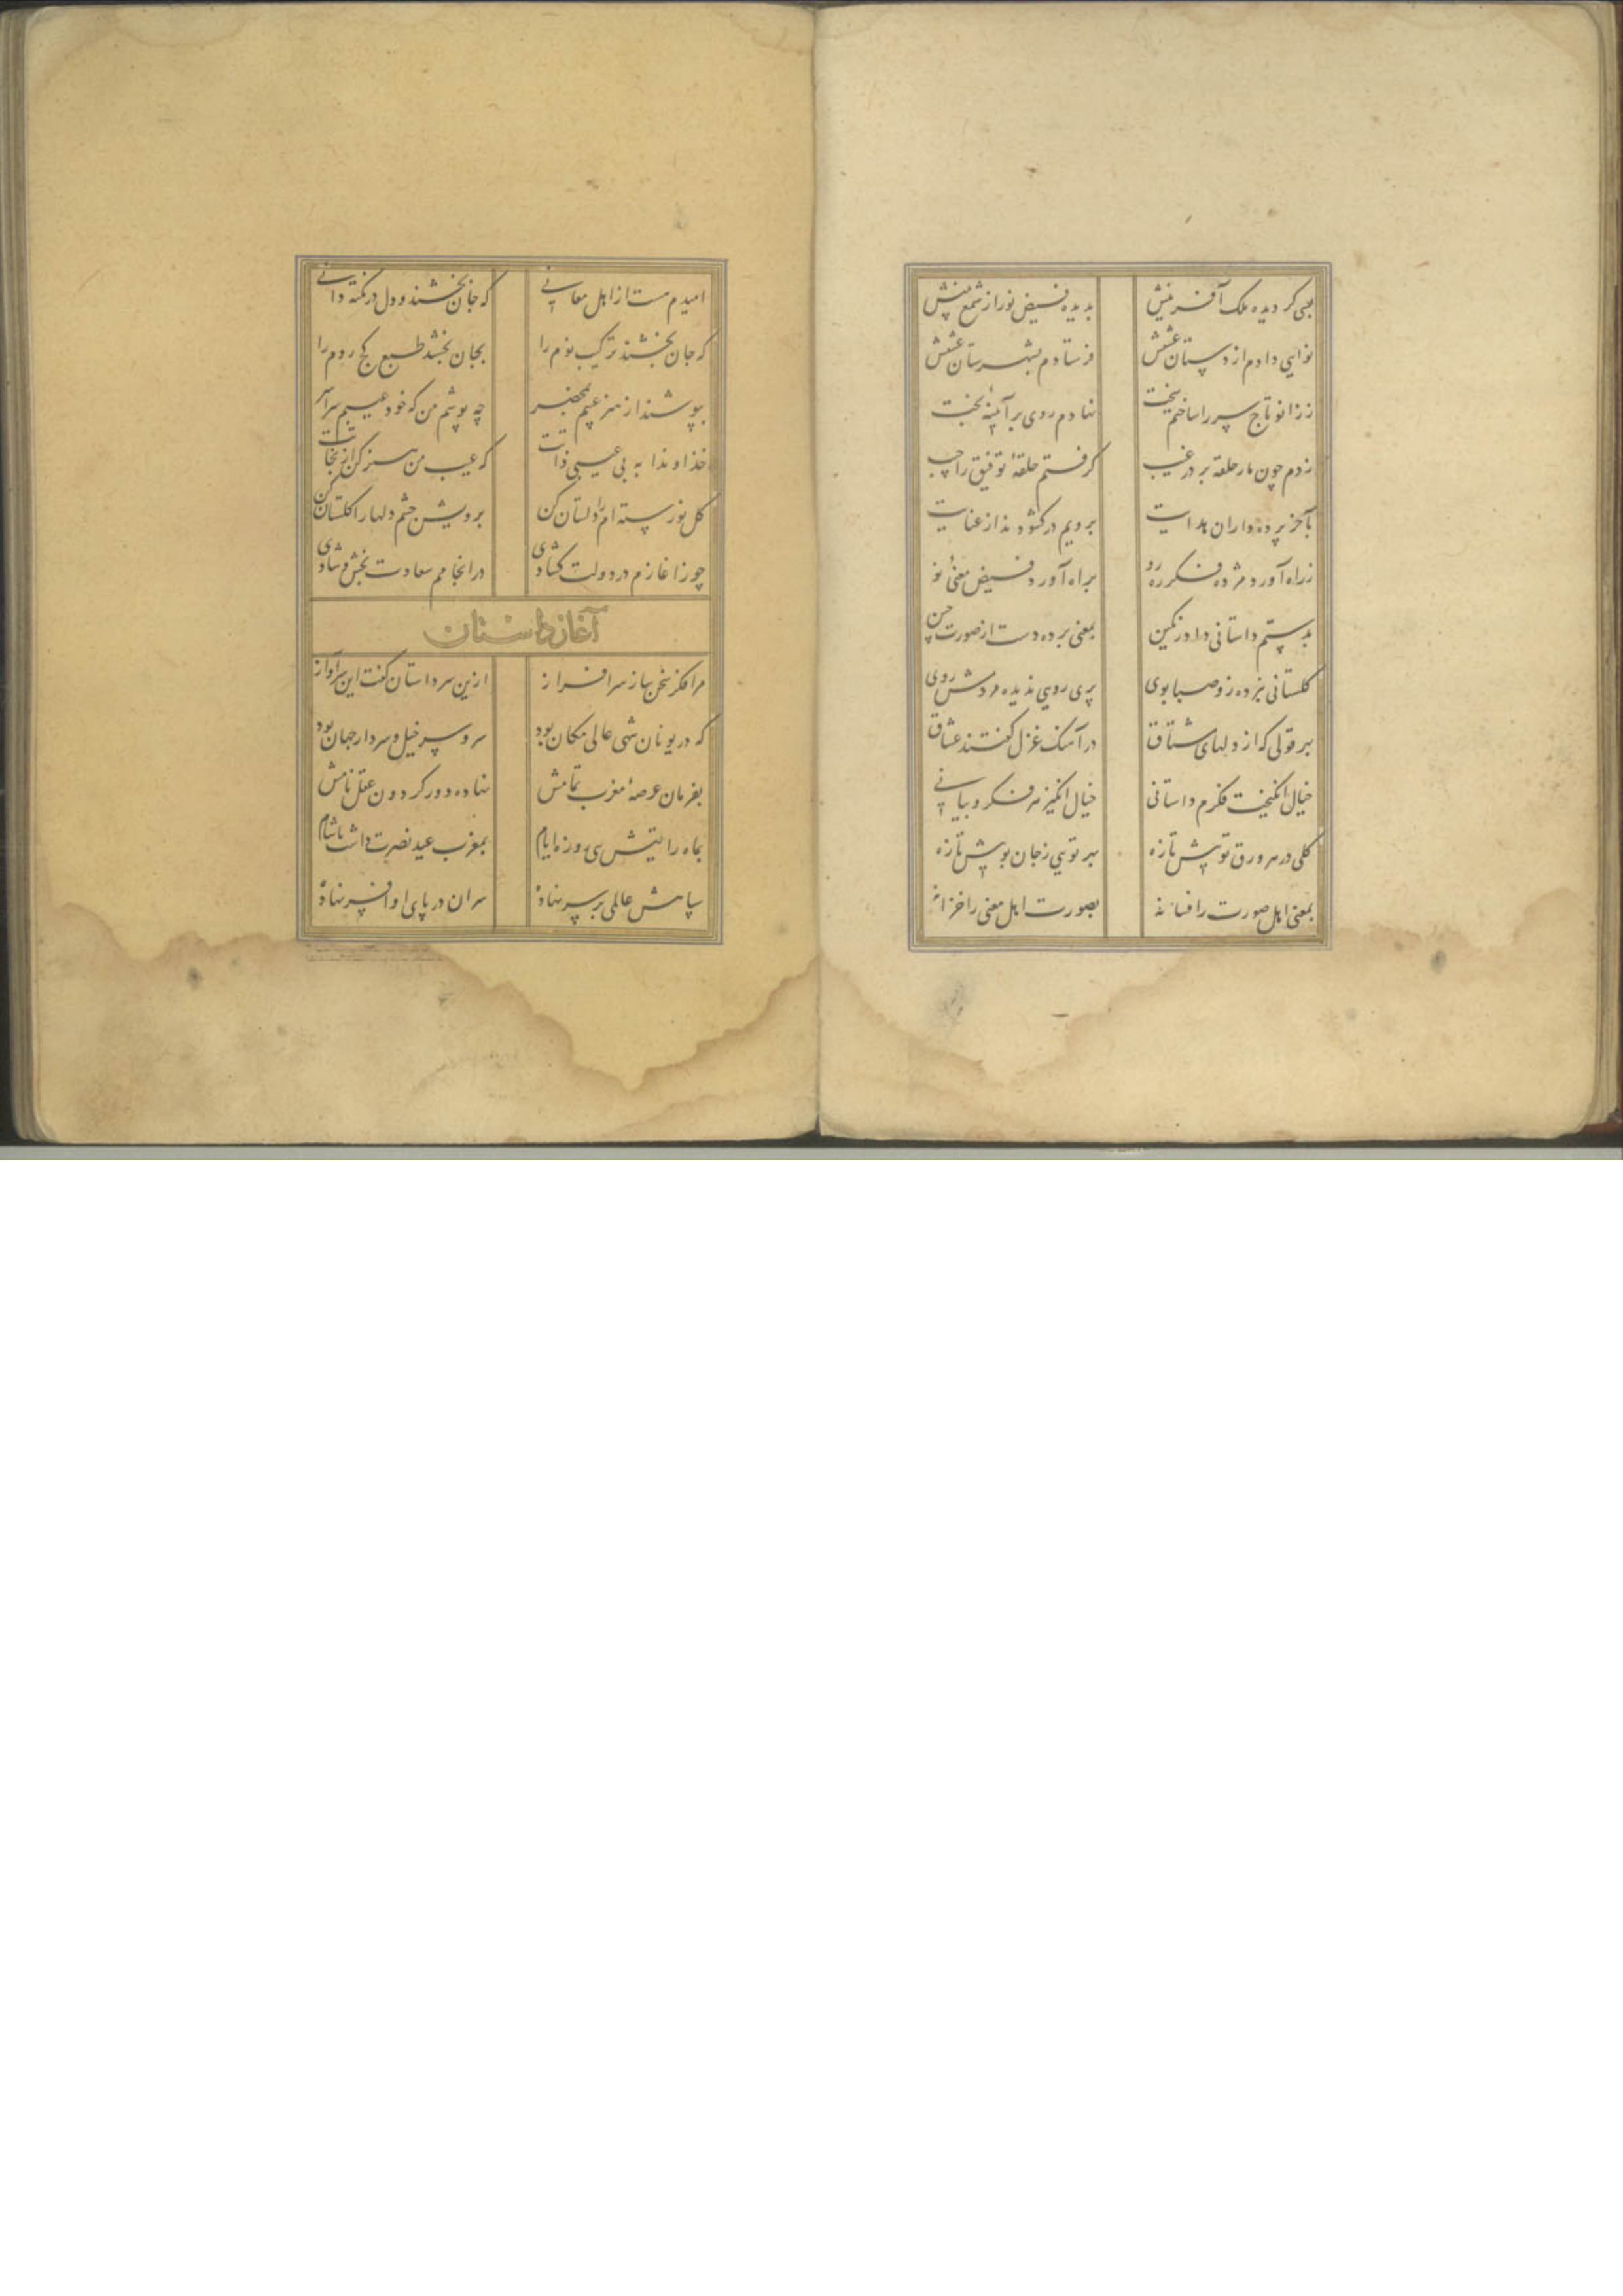 بسی گردیده ملک آفرینش بدیده فیض نور از شمع بینش
نوایی دادم از دستان عشقش فرستادم بشهرستان عشقش
ززانو تاج سر را ساختم تخت نهادم روی بر آیینهٔ بخت
زدم چون مار حلقه بر در غیب گرفتم حلقهٔ توفیق را جیب
بآخر پرده داران هدایت برویم در گشودند از عنایت
ز راه آورد مژده فکر ره رو براه آورد فیض معنی نو
بدستم داستانی داد رنگین بمعنی برده دست از صورت چین
گلستانی نبرده زو صبا بوی پری رویی ندیده مردمش روی
بهر قولی که از دلهای مشتاق در آهنگ غزل گفتند عشاق
خیال انگیخت فکرم داستانی خیال انگیز هر فکر و بیانی
گلی در هر ورق تو بیش تازه بهر تویی ز جان بویش تازه
بمعنی اهل صورت را فسانه بصورت اهل معنی را خزانه
امیدم هست از اهل معانی که جان بخشند و دل در نکته دانی
که جان بخشند ترکیب نوم را بجان بخشند طبع کج روم را
بپوشند از هنر عیبم بمحضر چه پوشم من که خود عیبم سراسر
خداوندا به بی عیبی ذاتت که عیب من هنر کن از نجاتت
گل نورسته ام را دلستان کن برویش چشم دلها را گلستان کن
چو ز آغازم در دولت گشادی در انجامم سعادت بخش و شادی
آغاز داستان
مرا فکر سخن ساز سرافراز ازین سر داستان گفت این سرآواز
که در یونان شهی عالی مکان بود سر و سر خیل و سردار جهان بود
بفرمان عرصهٔ مغرب تمامش نهاده دور گردون عقل نامش
بماه رایتیش سی روزه ایام بمغرب عید نصرت داشت با شام
سپاهش عالمی بر سر نهاده سران در پای او افسر نهاده